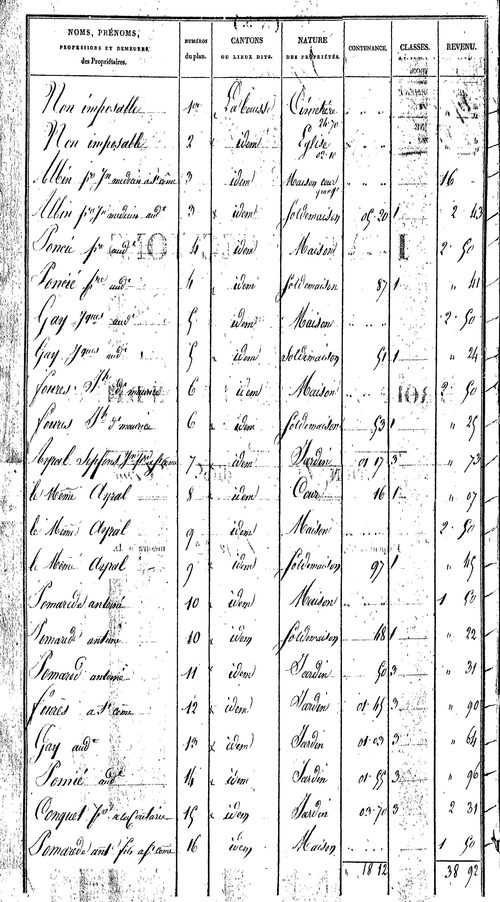 NOMS, PRÉNOMS, PROFESSIONS ET DEMEURES, des Propriétaires. | NUMÉROS du plan. | CANTONS OU LIEUX DITS. | NATURE DES PROPRIÉTÉS. | CONTENANCE. | CLASSES. | REVENU.
Non imposable 1er Cimetière
24-70
Non imposable 2 idem Eglise
02-10
3 idem Maison cour 16
3 idem Soldemaison 05-20 1 2 43
4 idem Maison 2 50
4 idem Soldemaison 87 1 " 41
Gay Jques aud 5 idem Maison 2 50
Gay Jques aud 5 idem Soldemaison 51 1 " 24
foures Jh dt maurice 6 idem Maison 2 50
foures Jh dt maurice 6 idem Soldemaison 53 1 " 25
Ayral 7 idem Jardin 01 17 3 " 73
le Même Ayral 8 idem Cour 16 1 " 07
le Même Ayral 9 idem Maison 2 50
le Même Ayral 9 idem Soldemaison 97 1 " 45
Pomarede antoine 10 idem Maison 1 50
Pomared antoine 10 idem Soldemaison 48 1 " 22
Pomared antoine 11 idem Jardin 50 3 " 31
foures a St Côme 12 idem Jardin 01-45 3 " 90
Gay aud 13 idem Jardin 01-03 3 " 64
aud 14 idem Jardin 01-55 3 " 96
Conquet 15 idem Jardin 03-70 3 2 31
Pomarede ant fils a St Côme 16 idem Maison 1 50
18 12 38 92